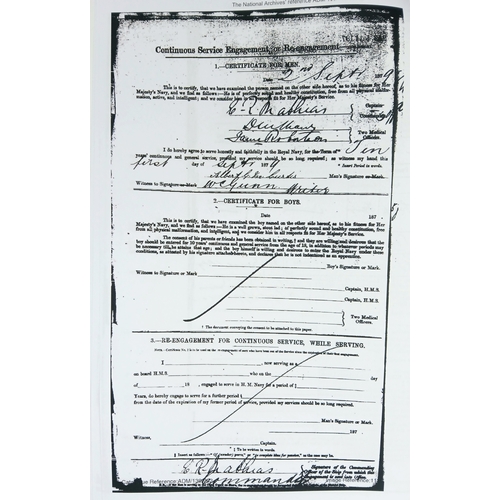 The National Archives' reference ADM
Continuous Service Engagement or Re-engagement
1.—CERTIFICATE FOR MEN.
Date 2nd Septr 1879
This is to certify, that we have examined the person named on the other side hereof, as to his fitness for Her
Majesty's Navy, and we find as follows:—He is of perfectly sound and healthy constitution, free from all physical malfor-
mation, active, and intelligent; and we consider him in all respects fit for Her Majesty's Service.
E. R. Mathias Captain
Commanding
James Robertson Two Medical
Officers.
I do hereby agree to serve honestly and faithfully in the Royal Navy, for the Term of * Ten
years' continuous and general service, provided my service should be so long required; as witness my hand this
first day of Septr 1879 * Insert Period in words.
Man's Signature or Mark.
Witness to Signature or Mark. W McGunn Writer
2.—CERTIFICATE FOR BOYS.
Date 187 .
This is to certify, that we have examined the boy named on the other side hereof, as to his fitness for Her
Majesty's Navy, and we find as follows:—He is a well grown, stout lad; of perfectly sound and healthy constitution, free
from all physical malformation, and intelligent, and we consider him in all respects fit for Her Majesty's Service.
The consent of his parents or friends has been obtained in writing,† and they are willing and desirous that the
boy should be entered for 10 years' continuous and general service from the age of 18, in addition to whatever periods may
be necessary till he attain that age; and the boy himself is willing and desirous to enter the Royal Navy under these
conditions, as attested by his signature attached hereto, and declares he is not indentured as an apprentice.
Boy's Signature or Mark.
Witness to Signature or Mark
Captain, H.M.S.
Captain, H.M.S.
Two Medical
Officers.
† The document conveying the consent to be attached to this paper.
3.—RE-ENGAGEMENT FOR CONTINUOUS SERVICE, WHILE SERVING.
I now serving as a
on board H.M.S. who on the day
of 18 , engaged to serve in H.M. Navy for a period of ‡
Years, do hereby engage to serve for a further period ‡
from the date of the expiration of my former period of service, provided my services should be so long required.
Man's Signature or Mark.
187 .
Witness,
Captain.
‡ To be written in words.
E R Mathias
Commander
Signature of the Commanding
Officer of the Ship from which this
Image Reference:11